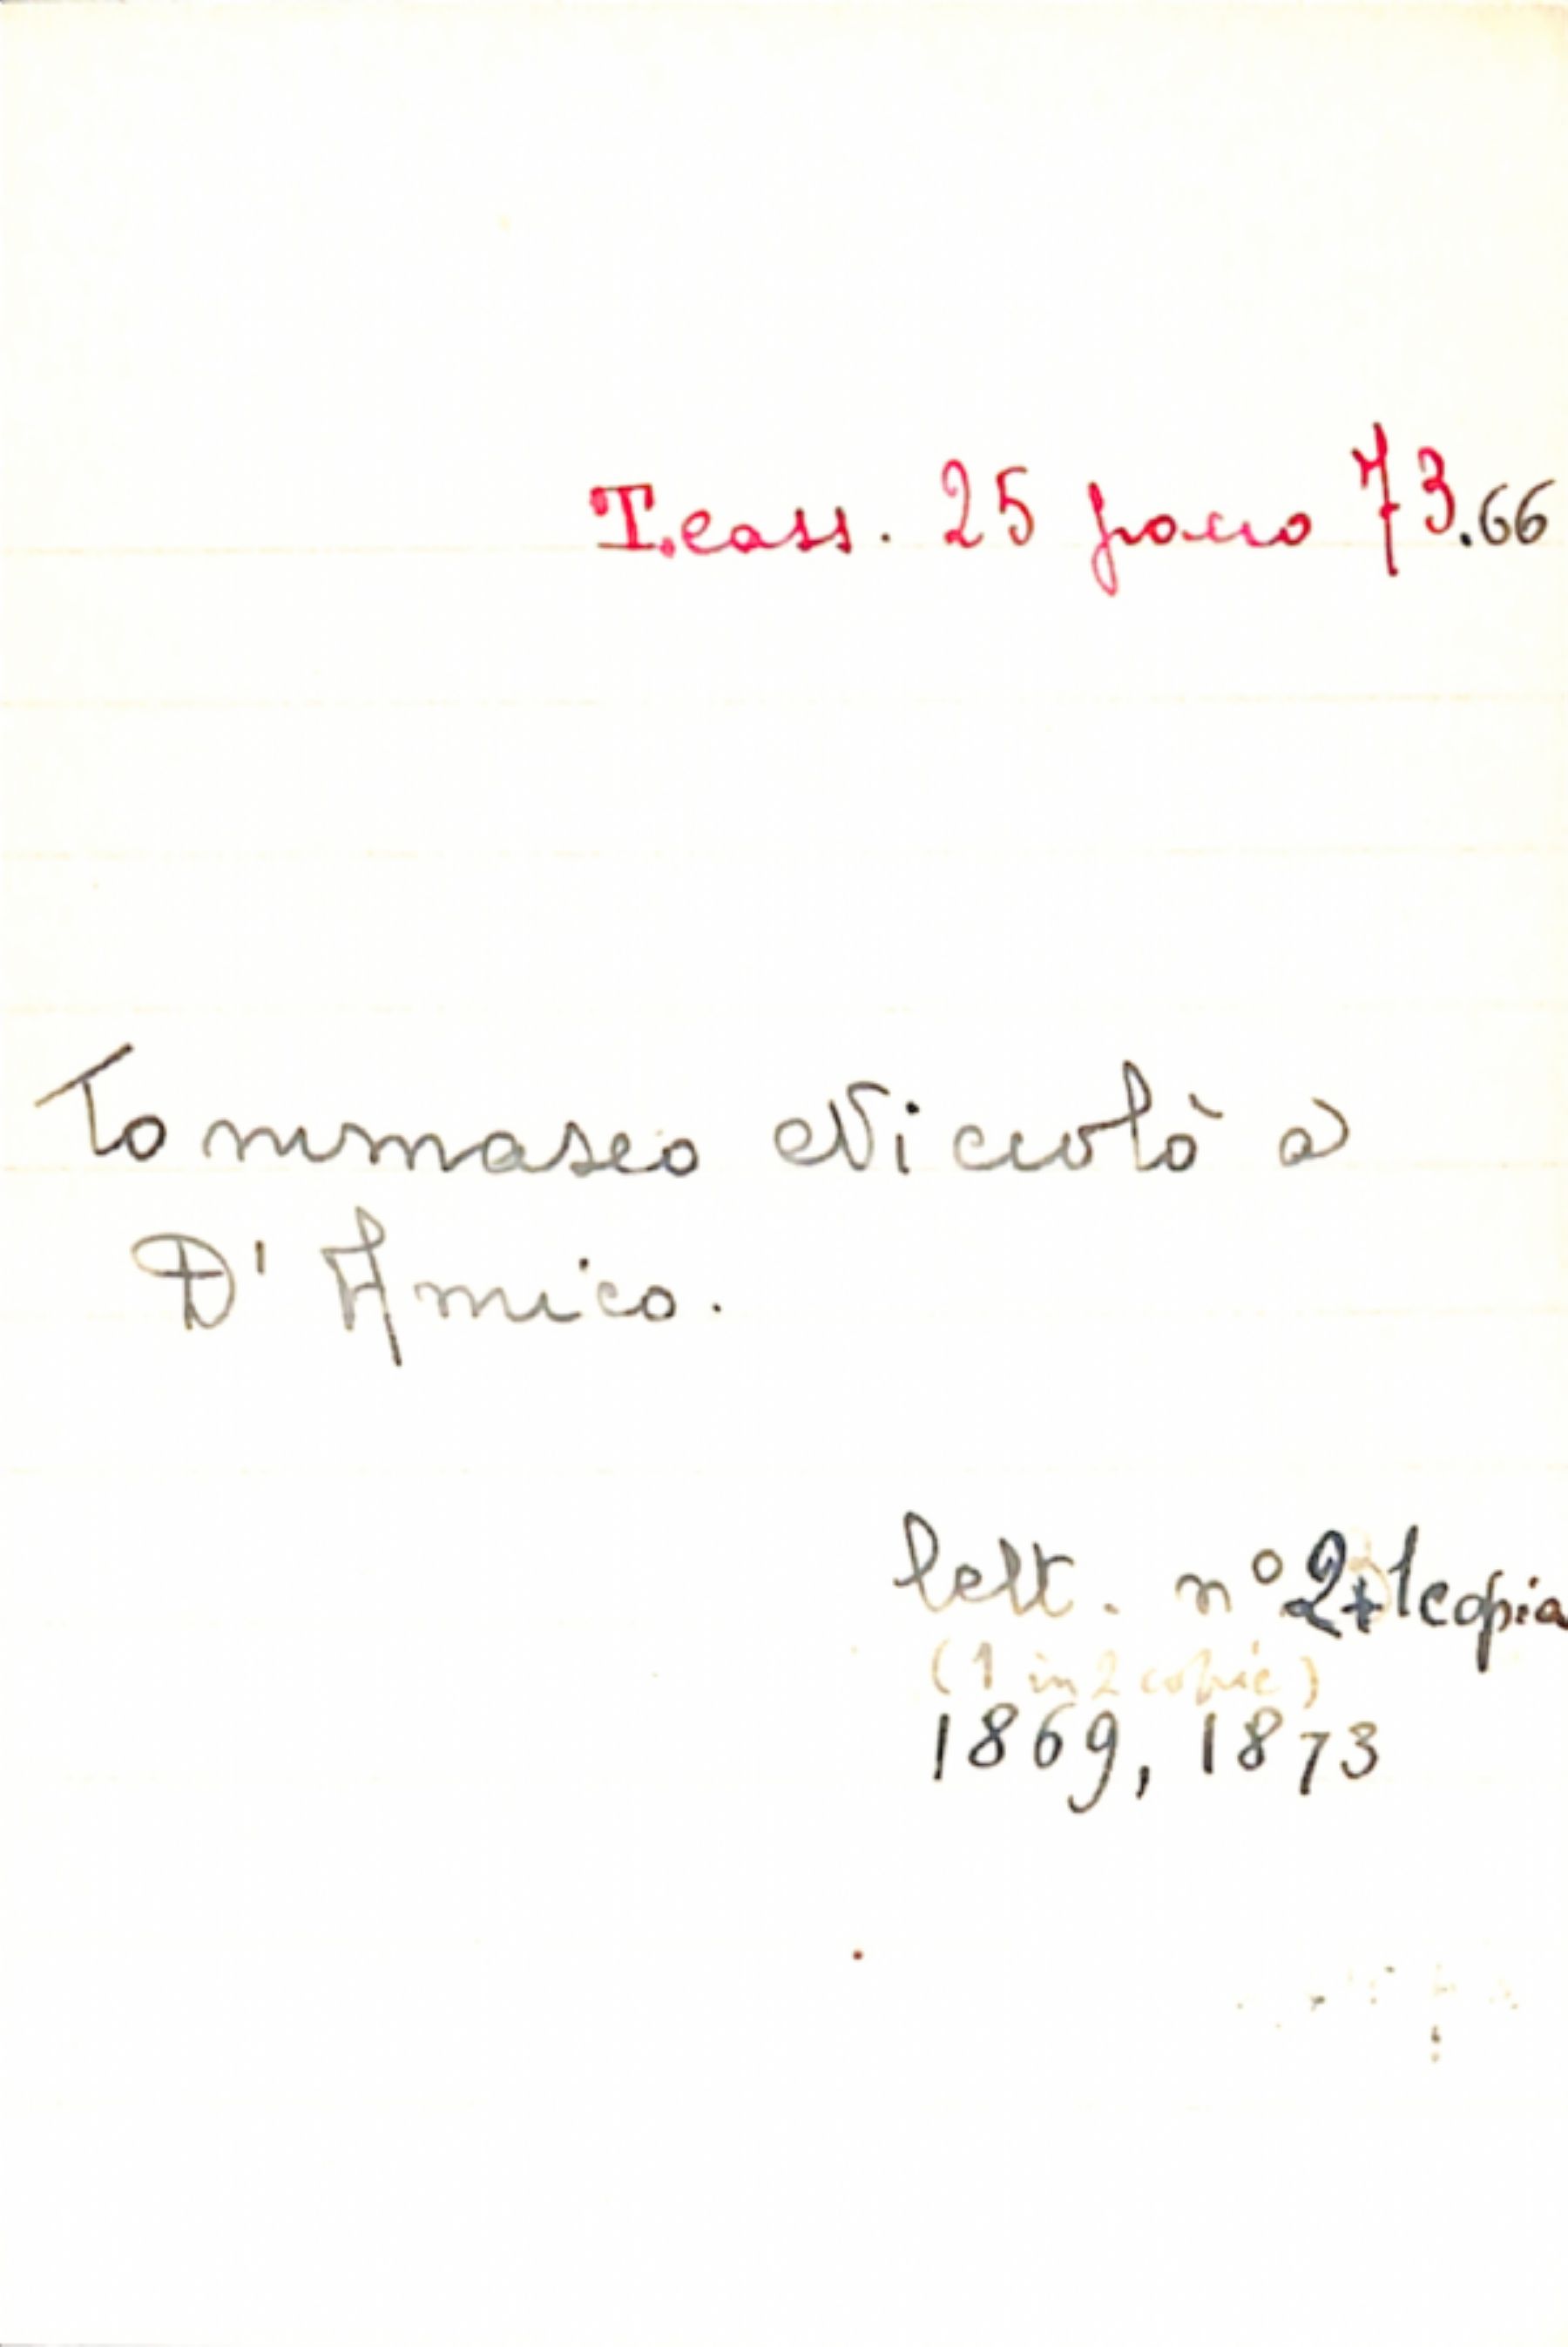 T.cass. 25 pacco 73.66
Tommaseo Niccolò a
D'Amico.
lett. n° 2+1copia
(1 in 2 copie)
1869, 1873